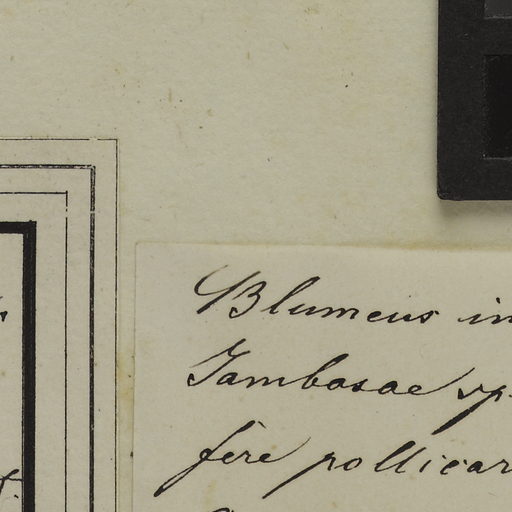 Blumeus in
Jambosae sp.
fere pollicar